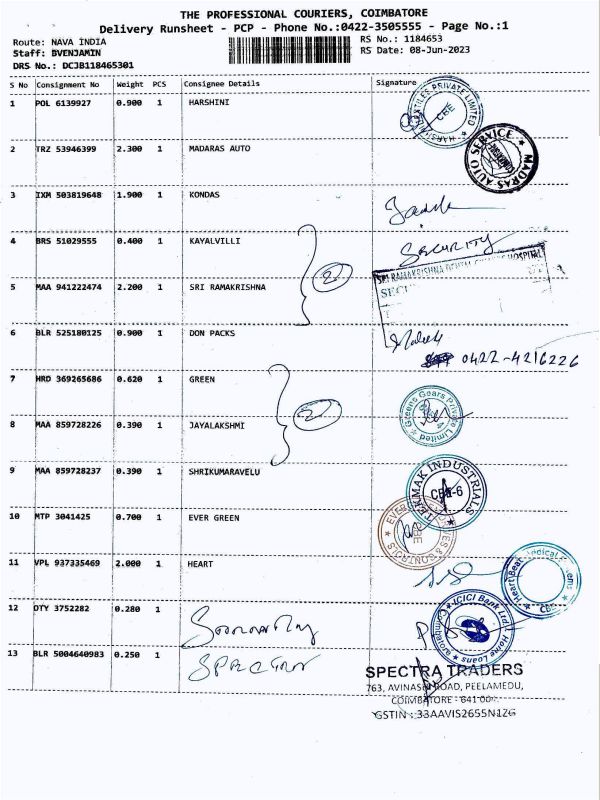 THE PROFESSIONAL COURIERS, COIMBATORE
Delivery Runsheet - PCP - Phone No.:0422-3505555 - Page No.:1
Route: NAVA INDIA
Staff: BVENJAMIN
DRS No.: DCJB118465301
RS No.: 1184653
RS Date: 08-Jun-2023
S No Consignment No Weight PCS Consignee Details Signature
1 POL 6139927 0.900 1 HARSHINI
PRIVATE LIMITED
CBE
2 TRZ 53946399 2.300 1 MADARAS AUTO
MADRAS AUTO SERVICE
3 IXM 503819648 1.900 1 KONDAS
4 BRS 51029555 0.400 1 KAYALVILLI
SECURITY
2
5 MAA 941222474 2.200 1 SRI RAMAKRISHNA
SRI RAMAKRISHNA DENTAL HOSPITAL
6 BLR 525180125 0.900 1 DON PACKS
0422-4216226
7 HRD 369265686 0.620 1 GREEN
Greens Gears Private Limited
2
8 MAA 859728226 0.390 1 JAYALAKSHMI
9 MAA 859728237 0.390 1 SHRIKUMARAVELU
TEKMAK INDUSTRIALS
CBE-6
10 MTP 3041425 0.700 1 EVER GREEN
EVER & CONTROLS
11 VPL 937335469 2.000 1 HEART
Heart Beat
CBE
12 OTY 3752282 0.280 1
ICICI Bank Ltd. Home Loans
Coimbatore
13 BLR 5004640983 0.250 1
SPECTRA TRADERS
763, AVINASHI ROAD, PEELAMEDU,
COIMBATORE - 641 004.
GSTIN : 33AAVIS2655N1ZG